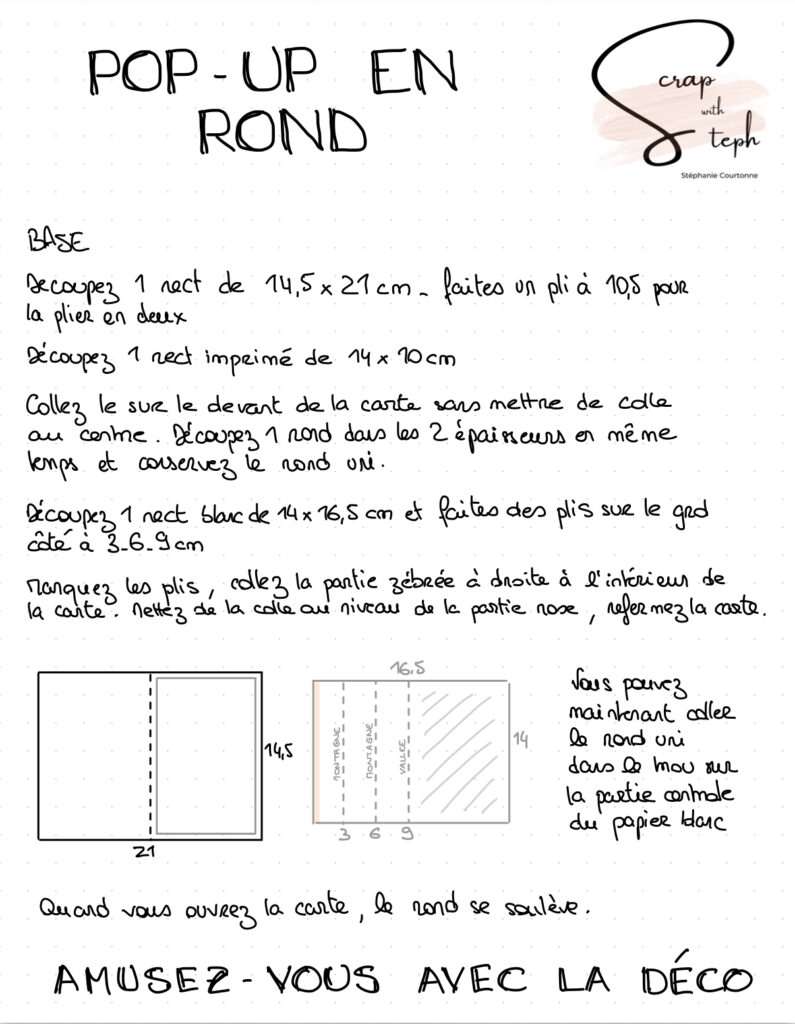 POP-UP EN
ROND
Scrap
with
Steph
Stéphanie Courtonne
BASE
Découpez 1 rect de 14,5 x 21 cm - faites un pli à 10,5 pour
la plier en deux
Découpez 1 rect imprimé de 14 x 10 cm
Collez le sur le devant de la carte sans mettre de colle
au centre. Découpez 1 rond dans les 2 épaisseurs en même
temps et conservez le rond uni.
Découpez 1 rect blanc de 14 x 16,5 cm et faites des plis sur le grd
côté à 3-6-9 cm
Marquez les plis, collez la partie zébrée à droite à l'intérieur de
la carte. Mettez de la colle au niveau de la partie rose, refermez la carte.
14,5
21
16,5
MONTAGNE
MONTAGNE
VALLEE
14
3 6 9
Vous pouvez
maintenant coller
le rond uni
dans le trou sur
la partie centrale
du papier blanc
Quand vous ouvrez la carte, le rond se soulève.
AMUSEZ-VOUS AVEC LA DÉCO